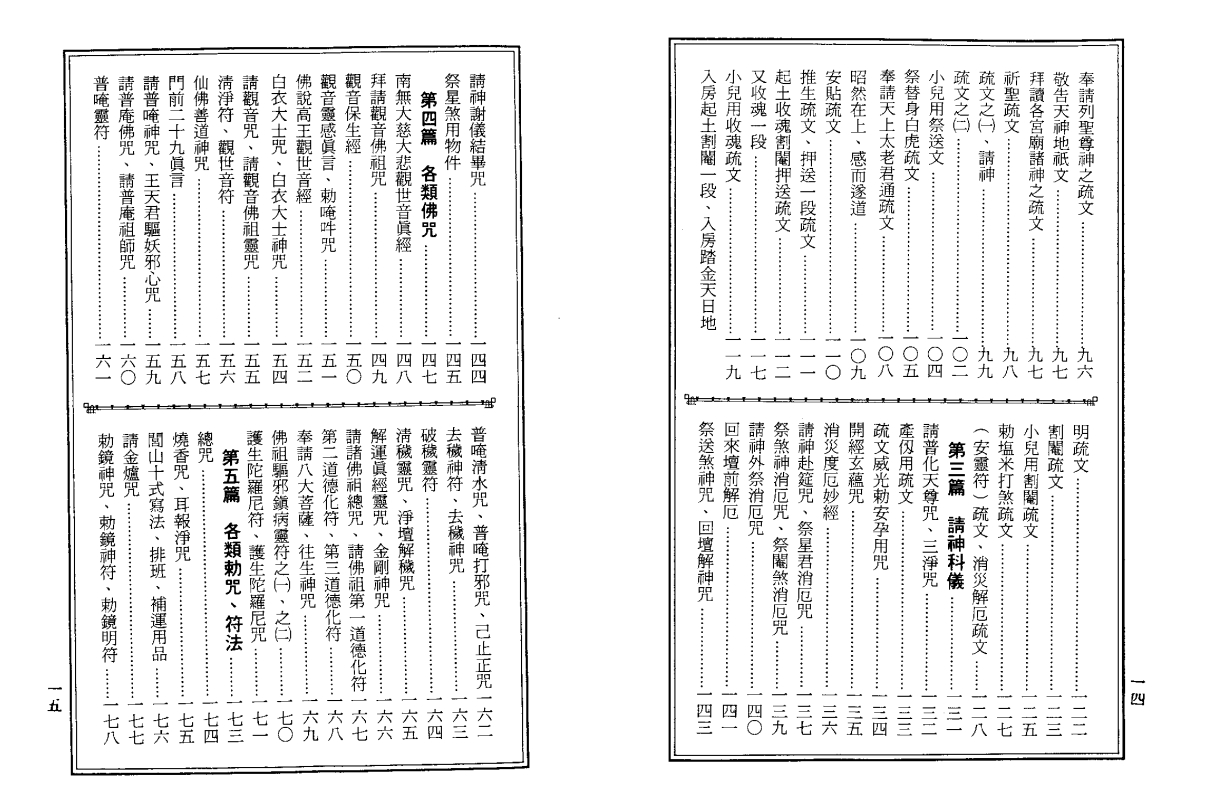 奉請列聖尊神之疏文……九六
敬告天神地祇文……九七
拜讀各宮廟諸神之疏文……九七
祈聖疏文……九八
疏文之㈠、請神……九九
疏文之㈡……一〇二
小兒用祭送文……一〇四
祭替身白虎疏文……一〇五
奉請天上太老君通疏文……一〇八
昭然在上、感而遂道……一〇九
安貼疏文……一一〇
推生疏文、押送一段疏文……一一一
起土收魂割闈押送疏文……一一二
又收魂一段……一一七
小兒用收魂疏文……一一九
入房起土割闈一段、入房踏金天日地
明疏文……一二二
割闈疏文……一二三
小兒用割闈疏文……一二五
勅塩米打煞疏文……一二七
（安靈符）疏文、消災解厄疏文……一二八
第三篇　請神科儀……一三一
請普化天尊咒、三淨咒……一三二
產仭用疏文……一三三
疏文威光勅安孕用咒……一三四
開經玄蘊咒……一三五
消災度厄妙經……一三六
請神赴筵咒、祭星君消厄咒……一三七
祭煞神消厄咒、祭闈煞消厄咒……一三九
請神外祭消厄咒……一四〇
回來壇前解厄……一四一
祭送煞神咒、回壇解神咒……一四三
一四
請神謝儀結畢咒……一四四
祭星煞用物件……一四五
第四篇　各類佛咒……一四七
南無大慈大悲觀世音眞經……一四八
拜請觀音佛祖咒……一四九
觀音保生經……一五〇
觀音靈感眞言、勅唵吽咒……一五一
佛說高王觀世音經……一五二
白衣大士咒、白衣大士神咒……一五四
請觀音咒、請觀音佛祖靈咒……一五五
淸淨符、觀世音符……一五六
仙佛善道神咒……一五七
門前二十九眞言……一五八
請普唵神咒、王天君驅妖邪心咒……一五九
請普庵佛咒、請普庵祖師咒……一六〇
普唵靈符……一六一
普唵淸水咒、普唵打邪咒、己止正咒……一六二
去穢神符、去穢神咒……一六三
破穢靈符……一六四
淸穢靈咒、淨壇解穢咒……一六五
解運眞經靈咒、金剛神咒……一六六
請諸佛祖總咒、請佛祖第一道德化符……一六七
第二道德化符、第三道德化符……一六八
奉請八大菩薩、往生神咒……一六九
佛祖驅邪鎭病靈符之㈠、之㈡……一七〇
護生陀羅尼符、護生陀羅尼咒……一七一
第五篇　各類勅咒、符法……一七三
總咒……一七四
燒香咒、耳報淨咒……一七五
閭山十式寫法、排班、補運用品……一七六
請金爐咒……一七七
勅鏡神咒、勅鏡神符、勅鏡明符……一七八
一五